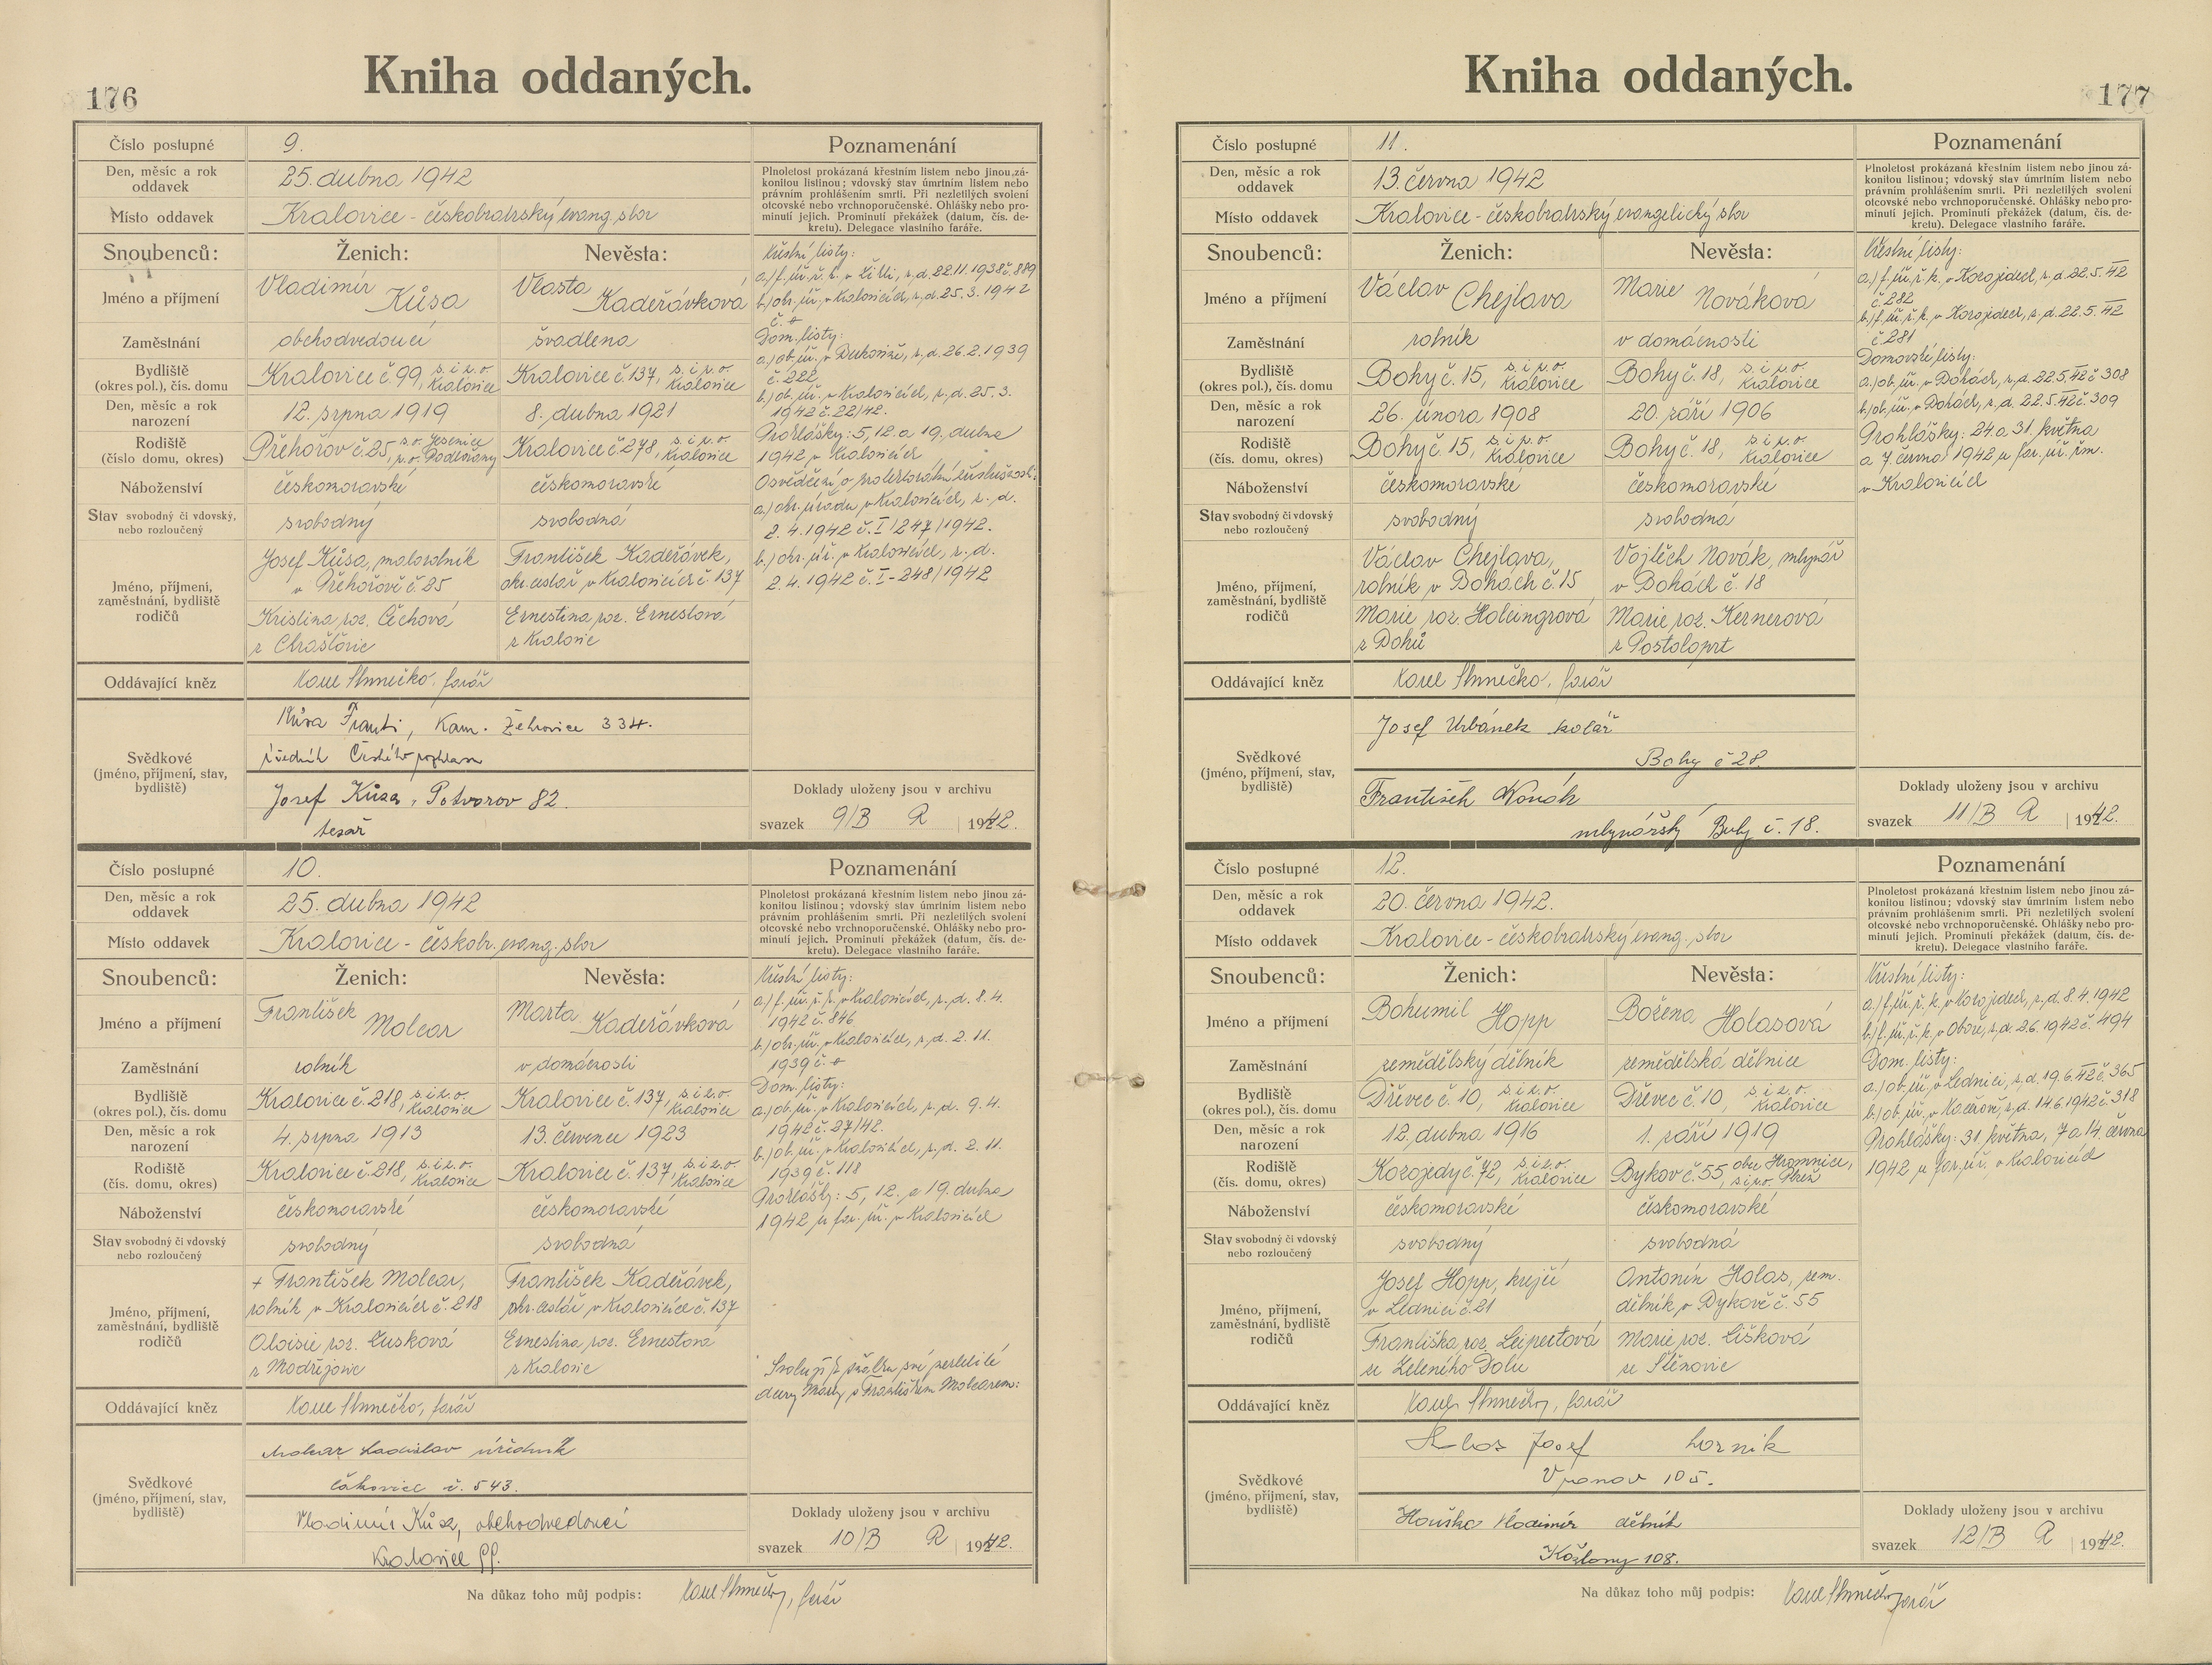 176
Kniha oddaných.
Číslo postupné 9.
Den, měsíc a rok oddavek 25. dubna 1942
Místo oddavek Kralovice - českobratrský evang. sbor
Poznamenání
Plnoletost prokázaná křestním listem nebo jinou zá-
konitou listinou; vdovský stav úmrtním listem nebo
právním prohlášením smrti. Při nezletilých svolení
otcovské nebo vrchnoporučenské. Ohlášky nebo pro-
minutí jejich. Prominutí překážek (datum, čís. de-
kretu). Delegace vlastního faráře.
Snoubenců: Ženich: Nevěsta:
Jméno a příjmení Vladimír Kůsa Vlasta Kadeřávková
Zaměstnání obchodvedoucí švadlena
Bydliště (okres pol.), čís. domu Kralovice č. 99, s. i p. o. Kralovice Kralovice č. 137, s. i p. o. Kralovice
Den, měsíc a rok narození 12. srpna 1919 8. dubna 1921
Rodiště (číslo domu, okres) Přehořov č. 25, s. o. Jesenice p. o. Podbořany Kralovice č. 278, s. i p. o. Kralovice
Náboženství českomoravské českomoravské
Stav svobodný či vdovský, nebo rozloučený svobodný svobodná
Jméno, příjmení, zaměstnání, bydliště rodičů
Josef Kůsa, malorolník František Kadeřávek,
v Přehořově č. 25 okr. cestář v Kralovicích č. 137
Kristina roz. Čechová Ernestina roz. Ernestová
z Chrášťovic z Kralovic
Křestní listy:
22.11.1938 č. 889
b.) obv. úř. v Kralovicích, z. d. 25.3.1942
Dom. listy:
z. d. 26.2.1939
č. 222
b.) ob. úř. v Kralovicích, z. d. 25.3.
1942 č. 22/42.
Prohlášky: 5, 12. a 19. dubna
1942 v Kralovicích
Osvědčení o protektorátní příslušnosti:
2.4.1942 č. I/247/1942.
2.4.1942 č. I-248/1942
Oddávající kněz farář
Svědkové (jméno, příjmení, stav, bydliště)
Kůsa Kam. Žehrovice 334.
Josef Kůsa, Potvorov 82.
tesař
Doklady uloženy jsou v archivu
svazek 9/B R 1942.
Číslo postupné 10.
Den, měsíc a rok oddavek 25. dubna 1942
Místo oddavek Kralovice - českobr. evang. sbor
Poznamenání
Plnoletost prokázaná křestním listem nebo jinou zá-
konitou listinou; vdovský stav úmrtním listem nebo
právním prohlášením smrti. Při nezletilých svolení
otcovské nebo vrchnoporučenské. Ohlášky nebo pro-
minutí jejich. Prominutí překážek (datum, čís. de-
kretu). Delegace vlastního faráře.
Snoubenců: Ženich: Nevěsta:
Jméno a příjmení František Molcar Marta Kadeřávková
Zaměstnání rolník v domácnosti
Bydliště (okres pol.), čís. domu Kralovice č. 218, s. i p. o. Kralovice Kralovice č. 137, s. i p. o. Kralovice
Den, měsíc a rok narození 4. srpna 1913 13. července 1923
Rodiště (čís. domu, okres) Kralovice č. 218, s. i p. o. Kralovice Kralovice č. 137, s. i p. o. Kralovice
Náboženství českomoravské českomoravské
Stav svobodný či vdovský nebo rozloučený svobodný svobodná
Jméno, příjmení, zaměstnání, bydliště rodičů
+ František Molcar, František Kadeřávek,
rolník v Kralovicích č. 218 okr. cestář v Kralovicích č. 137
Aloisie roz. Ernestina, roz. Ernestová
z Modřejovic z Kralovic
Křestní listy:
a.) f. úř. ř. k. v Kralovicích, z. d. 8.4.
1942 č. 846
b.) obv. úř. v Kralovicích, z. d. 2.11.
1939
Dom. listy:
a.) ob. úř. v Kralovicích, z. d. 9.4.
1942 č. 27/42.
b.) ob. úř. v Kralovicích, z. d. 2.11.
1939 č. 118
Prohlášky: 5, 12. a 19. dubna
1942 u far. úř. v Kralovicích
Svoluji k sňatku své nezletilé
dcery Marty s Františkem Molcarem:
Oddávající kněz farář
Svědkové (jméno, příjmení, stav, bydliště)
Molcar Ladislav úředník
č. 543.
Vladimír Kůsa, obchodvedoucí
Kralovice 99.
Doklady uloženy jsou v archivu
svazek 10/B R 1942.
Na důkaz toho můj podpis: farář
177
Kniha oddaných.
Číslo postupné 11.
Den, měsíc a rok oddavek 13. června 1942
Místo oddavek Kralovice - českobratrský evangelický sbor
Poznamenání
Plnoletost prokázaná křestním listem nebo jinou zá-
konitou listinou; vdovský stav úmrtním listem nebo
právním prohlášením smrti. Při nezletilých svolení
otcovské nebo vrchnoporučenské. Ohlášky nebo pro-
minutí jejich. Prominutí překážek (datum, čís. de-
kretu). Delegace vlastního faráře.
Snoubenců: Ženich: Nevěsta:
Jméno a příjmení Václav Chejlava Marie Nováková
Zaměstnání rolník v domácnosti
Bydliště (okres pol.), čís. domu Bohy č. 15, s. i p. o. Kralovice Bohy č. 18, s. i p. o. Kralovice
Den, měsíc a rok narození 26. února 1908 20. září 1906
Rodiště (čís. domu, okres) Bohy č. 15, s. i p. o. Kralovice Bohy č. 18, s. i p. o. Kralovice
Náboženství českomoravské českomoravské
Stav svobodný či vdovský nebo rozloučený svobodný svobodná
Jméno, příjmení, zaměstnání, bydliště rodičů
Václav Chejlava, Vojtěch Novák, mlynář
rolník v Bohách č. 15 v Bohách č. 18
Marie roz. Holeingrová Marie roz. Kernerová
z Bohů z Postoloprt
Křestní listy:
a.) f. úř. ř. k. v Kozojedech, z. d. 22.5.42
č. 282
b.) f. úř. ř. k. v Kozojedech, z. d. 22.5.42
č. 281
Domovské listy:
a.) ob. úř. v Bohách, z. d. 22.5.42 č. 308
b.) ob. úř. v Bohách, z. d. 22.5.42 č. 309
Prohlášky: 24. a 31. května
a 7. června 1942 u far. úř.
v Kralovicích
Oddávající kněz farář
Svědkové (jméno, příjmení, stav, bydliště)
Josef Urbánek kolář
Bohy č 28.
František Novák
mlynářský Bohy č. 18.
Doklady uloženy jsou v archivu
svazek 11/B R 1942.
Číslo postupné 12.
Den, měsíc a rok oddavek 20. června 1942.
Místo oddavek Kralovice - českobratrský evang. sbor
Poznamenání
Plnoletost prokázaná křestním listem nebo jinou zá-
konitou listinou; vdovský stav úmrtním listem nebo
právním prohlášením smrti. Při nezletilých svolení
otcovské nebo vrchnoporučenské. Ohlášky nebo pro-
minutí jejich. Prominutí překážek (datum, čís. de-
kretu). Delegace vlastního faráře.
Snoubenců: Ženich: Nevěsta:
Jméno a příjmení Bohumil Hopp Božena Holasová
Zaměstnání zemědělský dělník zemědělská dělnice
Bydliště (okres pol.), čís. domu Dřevec č. 10, s. i p. o. Kralovice Dřevec č. 10, s. i p. o. Kralovice
Den, měsíc a rok narození 12. dubna 1916 1. září 1919
Rodiště (čís. domu, okres) Kozojedy č. 72, s. i p. o. Kralovice Bykov č. 55, obec Hromnice, s. i p. o. Plzeň
Náboženství českomoravské českomoravské
Stav svobodný či vdovský nebo rozloučený svobodný svobodná
Jméno, příjmení, zaměstnání, bydliště rodičů
Josef Hopp, krejčí Antonín Holas, zem.
v Lednici č. 21 dělník v Bykově č. 55
Františka roz. Leipertová Marie roz. Lišková
ze Zeleného Dolu ze Štěnovic
Křestní listy:
a.) f. úř. ř. k. v Kozojedech, z. d. 8.4.1942
b.) f. úř. ř. k. v Oboře, z. d. 2.6.1942 č. 494
Dom. listy:
a.) ob. úř. v Lednici, z. d. 19.6.42 č. 365
b.) ob. úř. v Kaceřově, z. d. 14.6.1942 č. 318
Prohlášky: 31. května, 7. a 14. června
1942 u far. úř. v Kralovicích
Oddávající kněz farář
Svědkové (jméno, příjmení, stav, bydliště)
Josef horník
Vranov 105.
Houška Vladimír dělník
Kožlany 108.
Doklady uloženy jsou v archivu
svazek 12/B R 1942.
Na důkaz toho můj podpis: farář